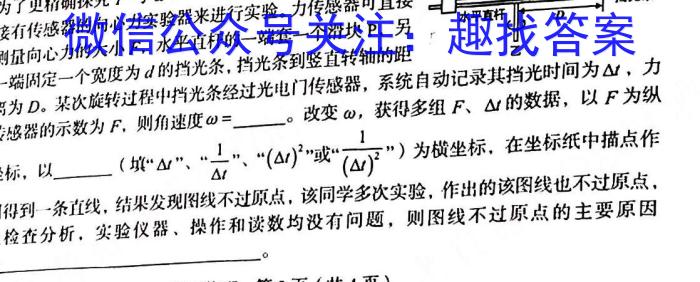 为了更精确探究
接有传感器的向心力实验器来进行实验，力传感器可直接
测量向心力的大小F，水平直杆的一端套一个滑块P，另
水平直杆
微信公众号关注：趣找答案
一端固定一个宽度为d的挡光条，挡光条到竖直转轴的距
离为D。某次旋转过程中挡光条经过光电门传感器，系统自动记录其挡光时间为Δt，力
传感器的示数为F，则角速度ω=______。改变ω，获得多组F、Δt的数据，以F为纵
坐标，以______（填“Δt”、“1/Δt”、“(Δt)²”或“1/(Δt)²”）为横坐标，在坐标纸中描点作
得到一条直线，结果发现图线不过原点，该同学多次实验，作出的该图线也不过原点，
检查分析，实验仪器、操作和读数均没有问题，则图线不过原点的主要原因
______。